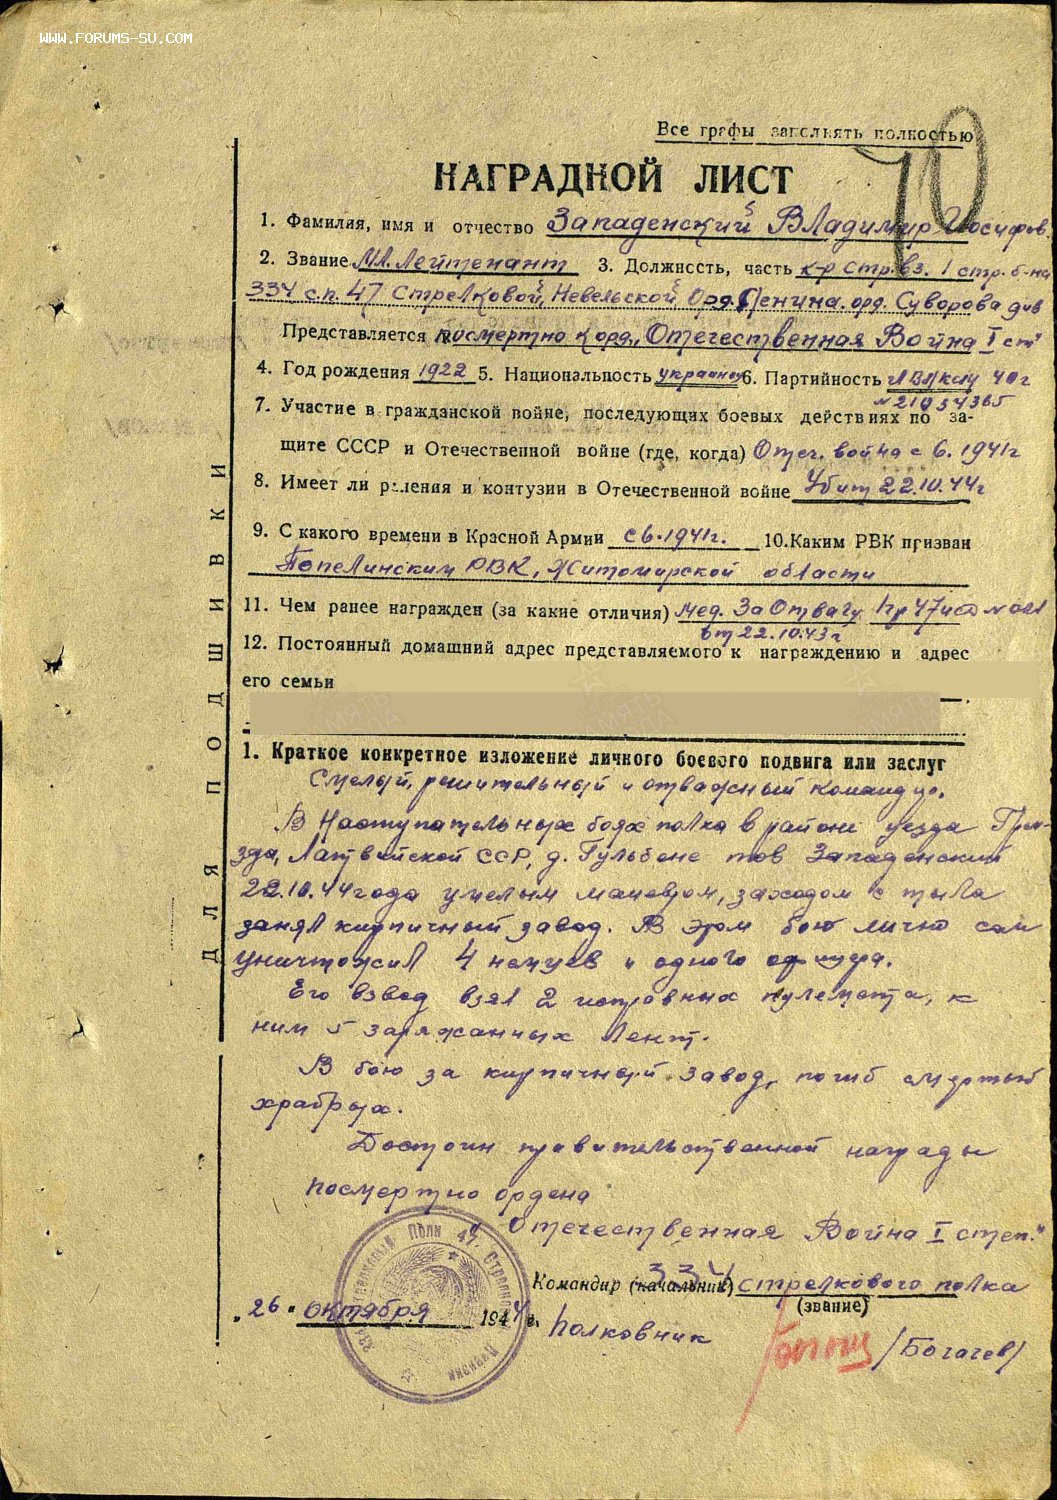 WWW.FORUMS-SU.COM
Все графы заполнять полностью
70
НАГРАДНОЙ ЛИСТ
1. Фамилия, имя и отчество Западенский Владимир Иосифов.
2. Звание Мл. Лейтенант 3. Должность, часть к-р стр. вз. 1 стр. б-на
334 с.п. 47 Стрелковой, Невельской, Орд. Ленина. орд. Суворова див
Представляется посмертно к орд. „Отечественная Война I ст"
4. Год рождения 1922 5. Национальность украинец 6. Партийность ЧЛВЛКСМ 40г
№21034365
7. Участие в гражданской войне, последующих боевых действиях по за-
щите СССР и Отечественной войне (где, когда) Отеч. война с 6.1941г
8. Имеет ли ранения и контузии в Отечественной войне Убит 22.10.44г
9. С какого времени в Красной Армии с 6.1941г. 10. Каким РВК призван
Попелинским РВК, Житомирской области
11. Чем ранее награжден (за какие отличия) мед. За Отвагу Пр 47исд №021
от 22.10.43г
12. Постоянный домашний адрес представляемого к награждению и адрес
его семьи
1. Краткое конкретное изложение личного боевого подвига или заслуг
Смелый, решительный и отважный командир.
В Наступательных боях полка в районе уезда
Латвийской ССР, д. Гульбене тов Западенский
22.10.44 года умелым маневром, заходом с тыла
занял кирпичный завод. В этом бою лично сам
уничтожил 4 немцев и одного офицера.
Его взвод взял 2 исправных пулемета, к
ним 5 заряжанных Лент.
В бою за кирпичный завод, погиб смертью
храбрых.
Достоин правительственной награды
посмертно ордена
„Отечественная Война I степ."
Командир (начальник) 334 стрелкового полка
(звание)
„26" октября 1944 г. Полковник /Богачев/
ДЛЯ ПОДШИВКИ